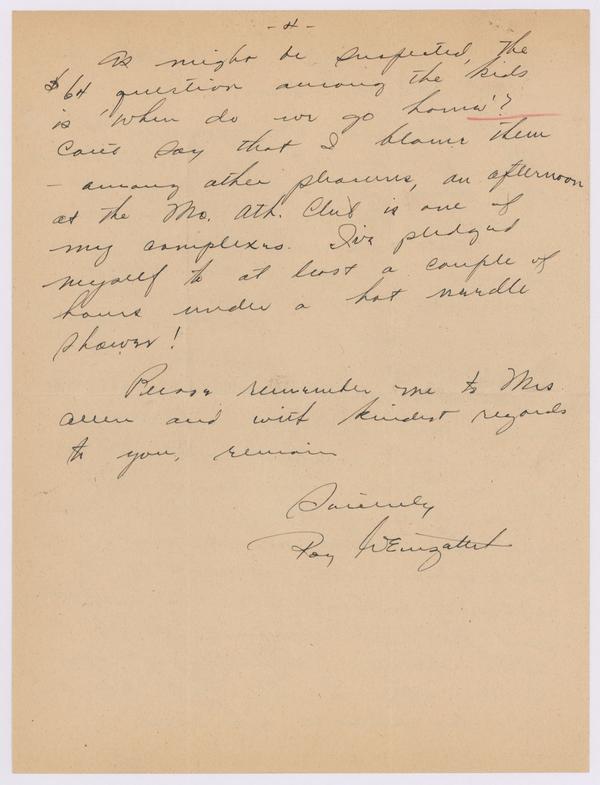 - 4 -
As might be suspected, the
$64 question among the kids
is "When do we go home"?
Can't say that I blame them
- among other pleasures, an afternoon
at the Mo. Ath. Club is one of
my complexes. I've pledged
myself to at least a couple of
hours under a hot needle
shower!
Please remember me to Mrs
Allen and with kindest regards
to you, remain
Sincerely
Ray